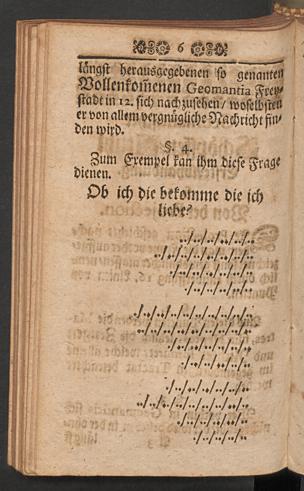 6
längst herausgegebenen so genanten
Vollenkom̃enen Geomantia Frey-
stadt in 12. sich nachzusehen / woselbsten
er von allem vergnügliche Nachricht fin-
den wird.
§. 4.
Zum Exempel kan ihm diese Frage
dienen.
Ob ich die bekomme die ich
liebe?